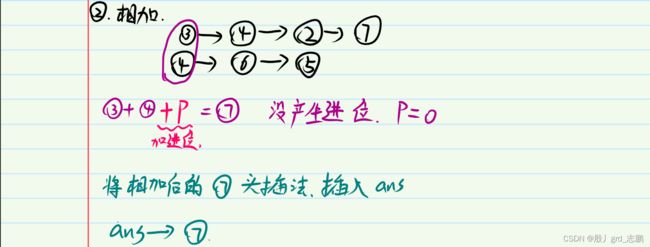 ②. 相加.
③→④→②→⑦
④→⑥→⑤
③+④+P=⑦ 没产生进位. P=0
加进位.
将相加后的⑦头插法.插入ans
ans→⑦.
CSDN @殷丿grd_志鹏